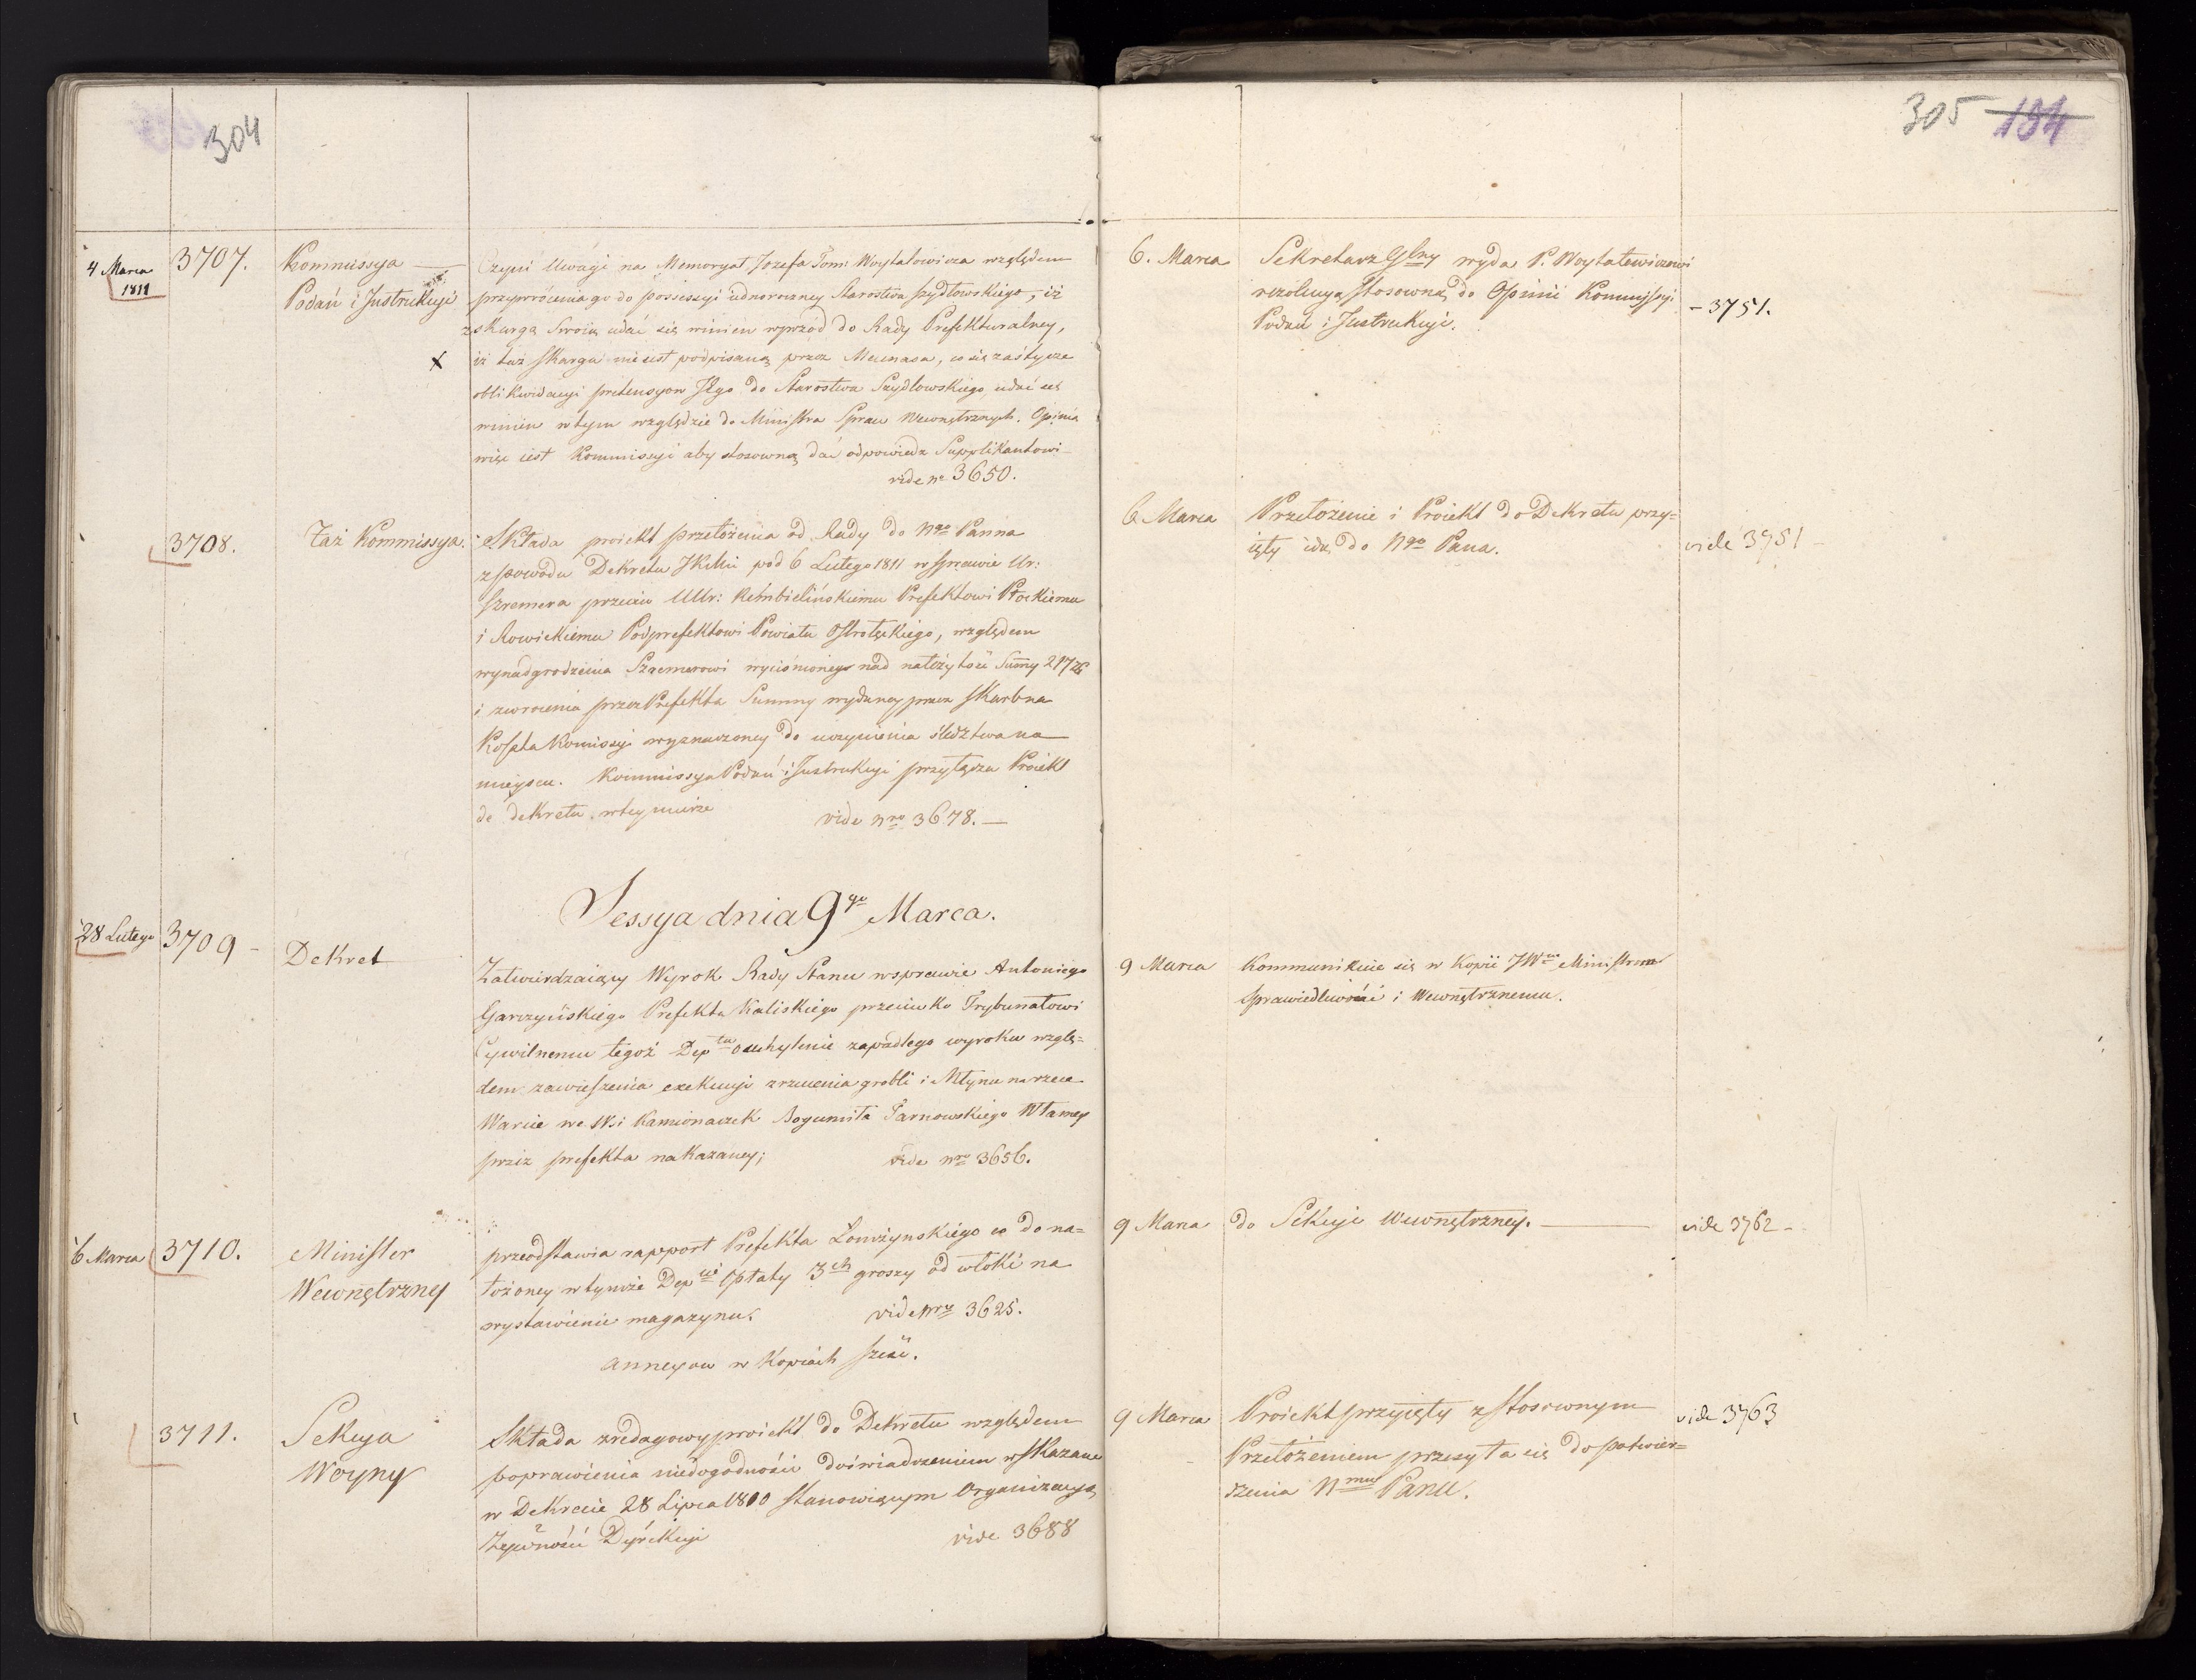 304
4 Marca
1811
3707.
Kommissya
Podań i Instrukcyi
Czyni Uwagi na Memoryał Jozefa Tom: Woytatowicza względem
przywrócenia go do possessyi iednoroczney Starostwa Szydłowskiego, iż
z skargą Swoią udać się winien wprzód do Rady Prefekturalney,
iż taż skarga nie iest podpisaną przez Mecenasa, co się zaś tycze
oblikwidacyi pretensyow Jego do Starostwa Szydłowskiego udać się
winien w tym względzie do Ministra Spraw Wewnętrznych. Opinia
więc iest Kommissyi aby stosowną dać odpowiedz Supplikantowi
vide no 3650.
3708.
Taż Kommissya.
Składa proiekt przełożenia od Rady do Ngo Panna
z powodu Dekretu JKMci pod 6 Lutego 1811 w sprawie Ur:
Szremera przeciw UUr: Rembielińskiemu Prefektowi Płockiemu
i Rowickiemu Podprefektowi Powiatu Ostrołęckiego, względem
wynadgrodzenia Szremerowi wyciśnionego nad należytość Summy
i zwrocenia przez Prefekta Summy wydaney przez skarb na
Koszta Komissyi wyznaczoney do uczynienia śledztwa na
mieyscu. Kommissya Podań i Instrukcyi przyłącza Proiekt
do dekretu w tey mierze
vide nro 3678.
Sessya dnia 9go Marca.
28 Lutego
3709
Dekret
Zatwierdzaiący Wyrok Rady Stanu w sprawie Antoniego
Garczyńskiego Prefekta Kaliskiego przeciwko Trybunałowi
Cywilnemu tegoż Deptu o uchylenie zapadłego wyroku wzglę=
dem zawieszenia exekucyi zrzucenia grobli i Młynu na rzece
Warcie we Wsi Kamionaczek Bogumiła Tarnowskiego Własney
przez prefekta nakazaney;
vide nro 3656.
6 Marca
3710.
Minister
Wewnętrzny
przedstawia rapport Prefekta Łomżynskiego co do na=
łożoney w tymże Depcie Opłaty 3ch groszy od włoki na
wystawienie magazynu.
vide nro 3625.
annexow w Kopiach sześć.
3711.
Sekcya
Woyny
Składa zredagowy proiekt do Dekretu względem
poprawienia niedogodności doświadczeniem wskazane
w Dekrecie 28 Lipca 1810 stanowiącym Organizacyą
Żywności Dyrekcyi
vide 3688
305 184
6. Marca
Sekretarz Glny wyda P. Woytatewiczowi
rezolucyą stosowną do Opinii Kommissyi
Podań i Instrukcyi.
- 3751.
6 Marca
Przełożenie i Proiekt do Dekretu przy=
ięty idą do Ngo Pana.
vide 3751
9 Marca
Kommunikuie się w Kopii JWm Ministrom
Sprawiedliwości i Wewnętrznemu.
9 Marca
do Sekcyi Wewnętrzney.
vide 3762
9 Marca
Proiekt przyięty z stosownym
Przełożeniem przesyła się do potwier=
dzenia Nmu Panu.
vide 3763